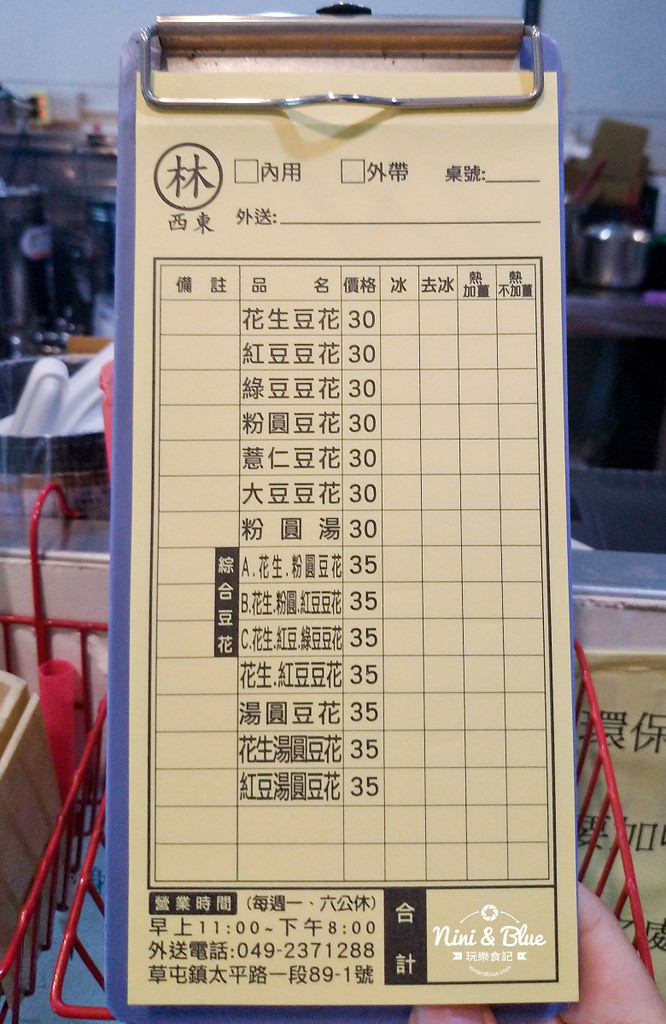 林 □內用 □外帶 桌號:
西東 外送:
備註 品名 價格 冰 去冰 熱加薑 熱不加薑
花生豆花 30
紅豆豆花 30
綠豆豆花 30
粉圓豆花 30
薏仁豆花 30
大豆豆花 30
粉圓湯 30
綜合豆花
A.花生.粉圓豆花 35
B.花生.粉圓.紅豆豆花 35
C.花生.紅豆.綠豆豆花 35
花生.紅豆豆花 35
湯圓豆花 35
花生湯圓豆花 35
紅豆湯圓豆花 35
營業時間 (每週一、六公休)
早上11:00~下午8:00
外送電話:049-2371288
草屯鎮太平路一段89-1號
合計
Nini & Blue
玩樂食記
niniandblue.com
環保
要加